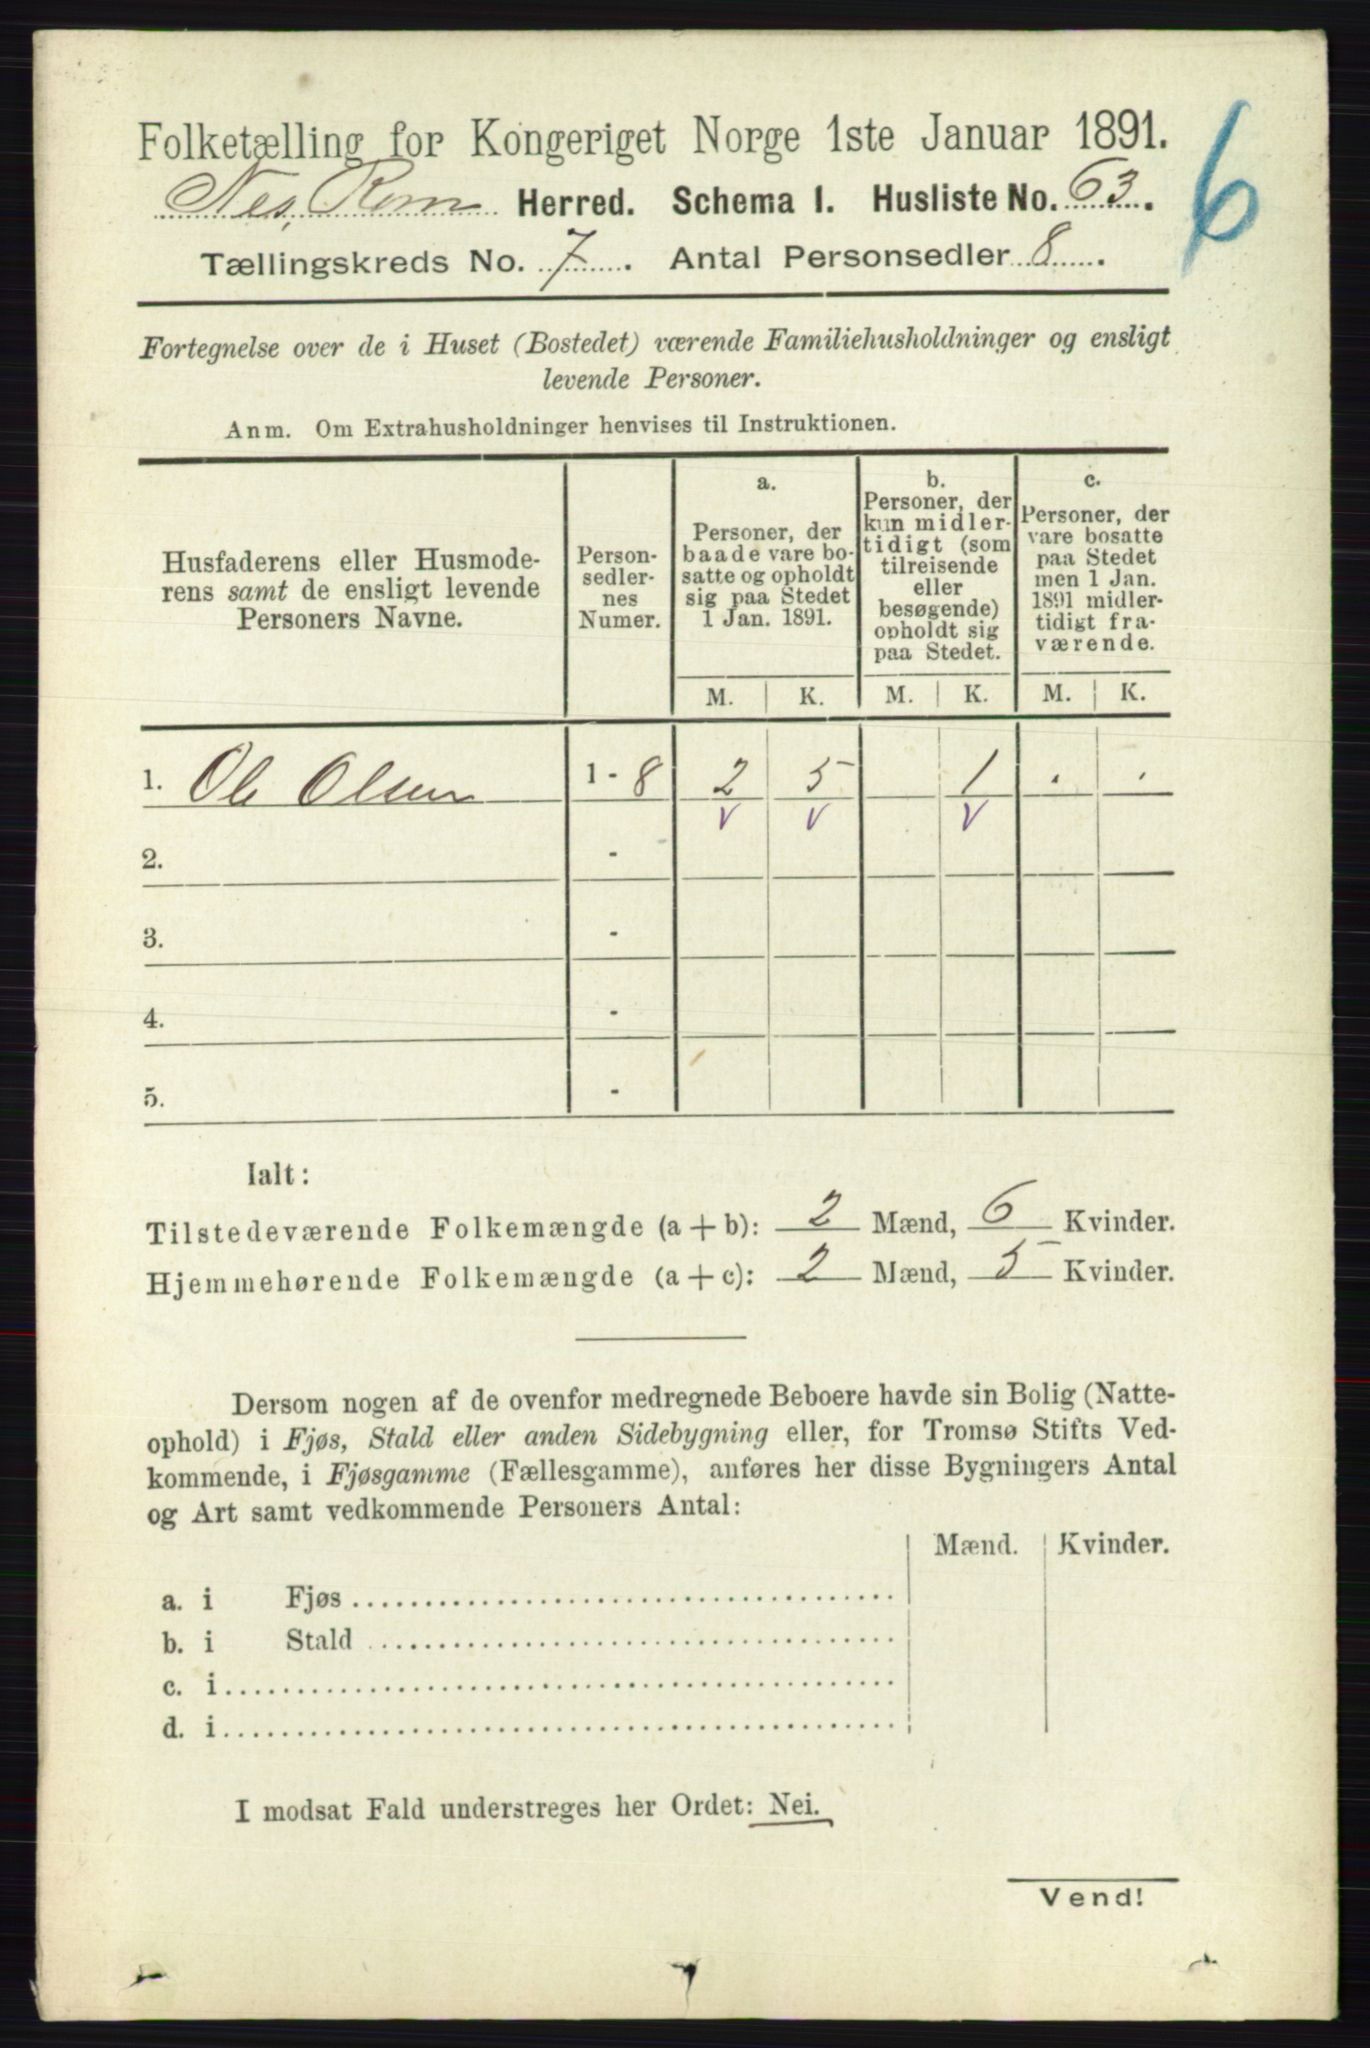 Folketælling for Kongeriget Norge 1ste Januar 1891.
6
Nes, Rom Herred. Schema 1. Husliste No. 63.
Tællingskreds No. 7. Antal Personsedler 8.
Fortegnelse over de i Huset (Bostedet) værende Familiehusholdninger og ensligt
levende Personer.
Anm. Om Extrahusholdninger henvises til Instruktionen.
Husfaderens eller Husmode-
rens samt de ensligt levende
Personers Navne.
Person-
sedler-
nes
Numer.
a.
Personer, der
baade vare bo-
satte og opholdt
sig paa Stedet
1 Jan. 1891.
b.
Personer, der
kun midler-
tidigt (som
tilreisende
eller
besøgende)
opholdt sig
paa Stedet.
c.
Personer, der
vare bosatte
paa Stedet
men 1 Jan.
1891 midler-
tidigt fra-
værende.
M. K. M. K. M. K.
1. Ole Olsen 1 - 8 2 5 1 . .
v v v
2. -
3. -
4. -
5. -
Ialt:
Tilstedeværende Folkemængde (a + b): 2 Mænd, 6 Kvinder.
Hjemmehørende Folkemængde (a + c): 2 Mænd, 5 Kvinder.
Dersom nogen af de ovenfor medregnede Beboere havde sin Bolig (Natte-
ophold) i Fjøs, Stald eller anden Sidebygning eller, for Tromsø Stifts Ved-
kommende, i Fjøsgamme (Fællesgamme), anføres her disse Bygningers Antal
og Art samt vedkommende Personers Antal:
Mænd. Kvinder.
a. i Fjøs
b. i Stald
c. i
d. i
I modsat Fald understreges her Ordet: Nei.
Vend!